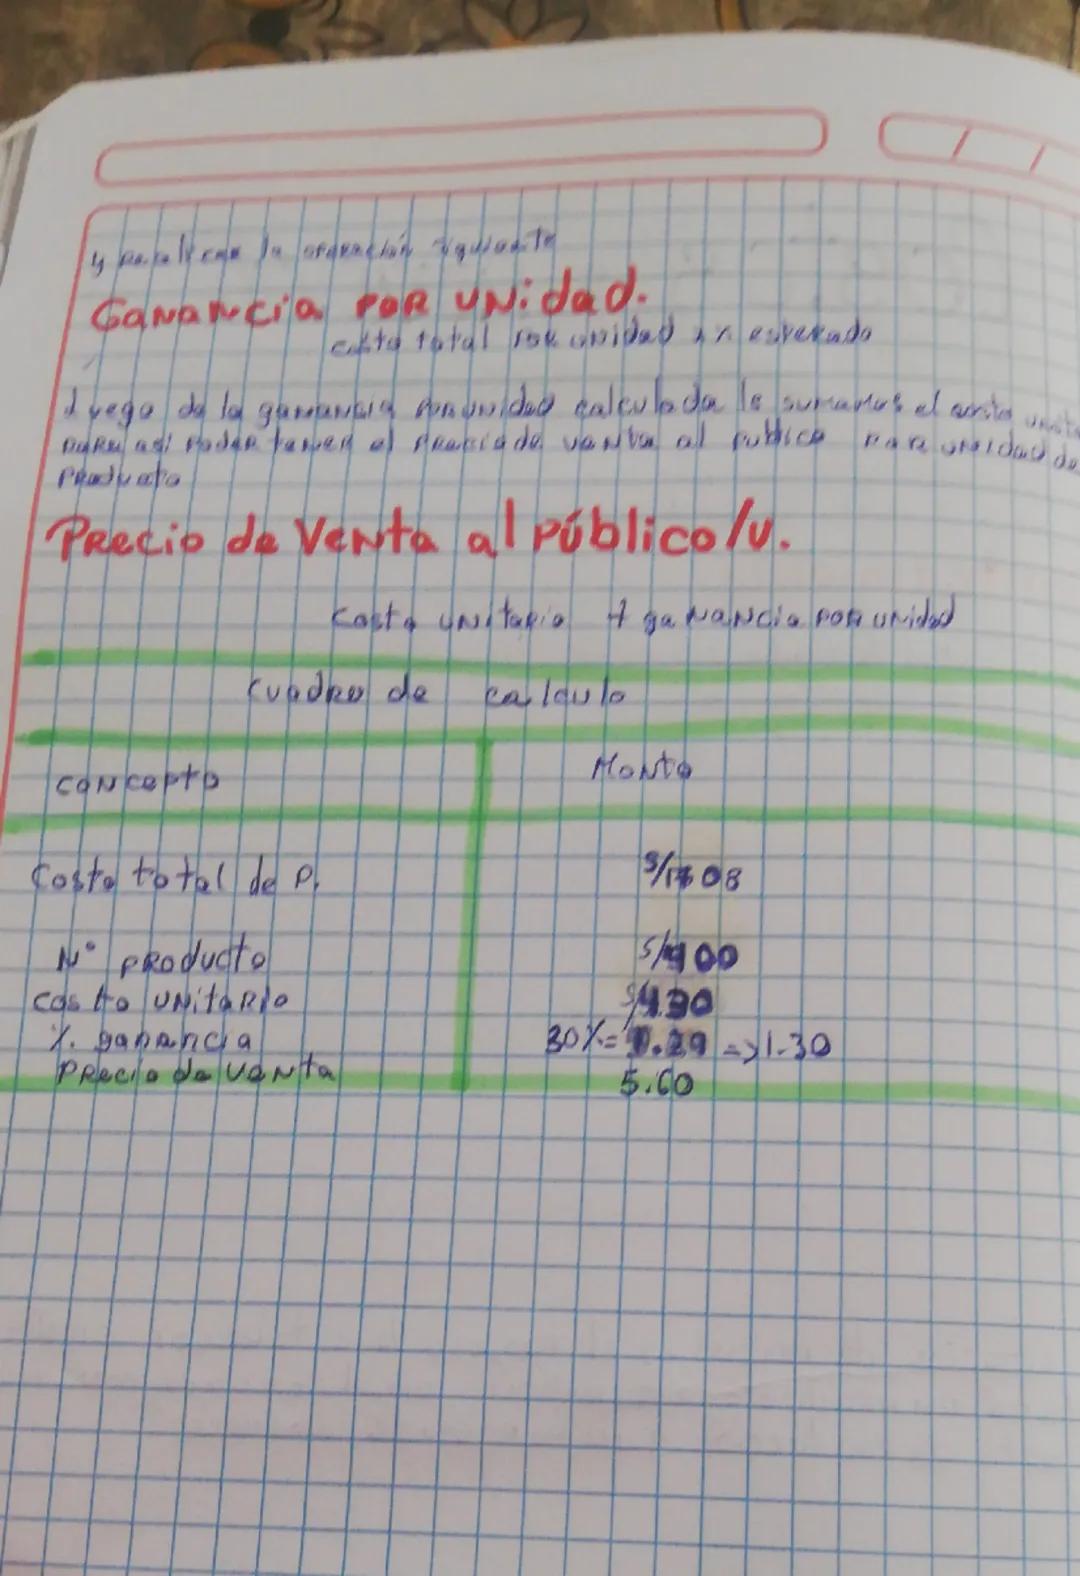 y realizar la operación siguiente
Ganancia por unidad.
costo total por unidad x % esperado
Luego de la ganancia por unidad calculada le sumamos el costo
para asi poder tener el precio de venta al publico por unidad de
Producto
Precio de Venta al público/u.
costo unitario + ganancia por unidad
Cuadro de calculo
concepto Monto
Costo total de P. S/1708
N° producto S/400
costo unitario S/4.30
%. ganancia 30%= 1.29 => 1.30
Precio de venta 5.60